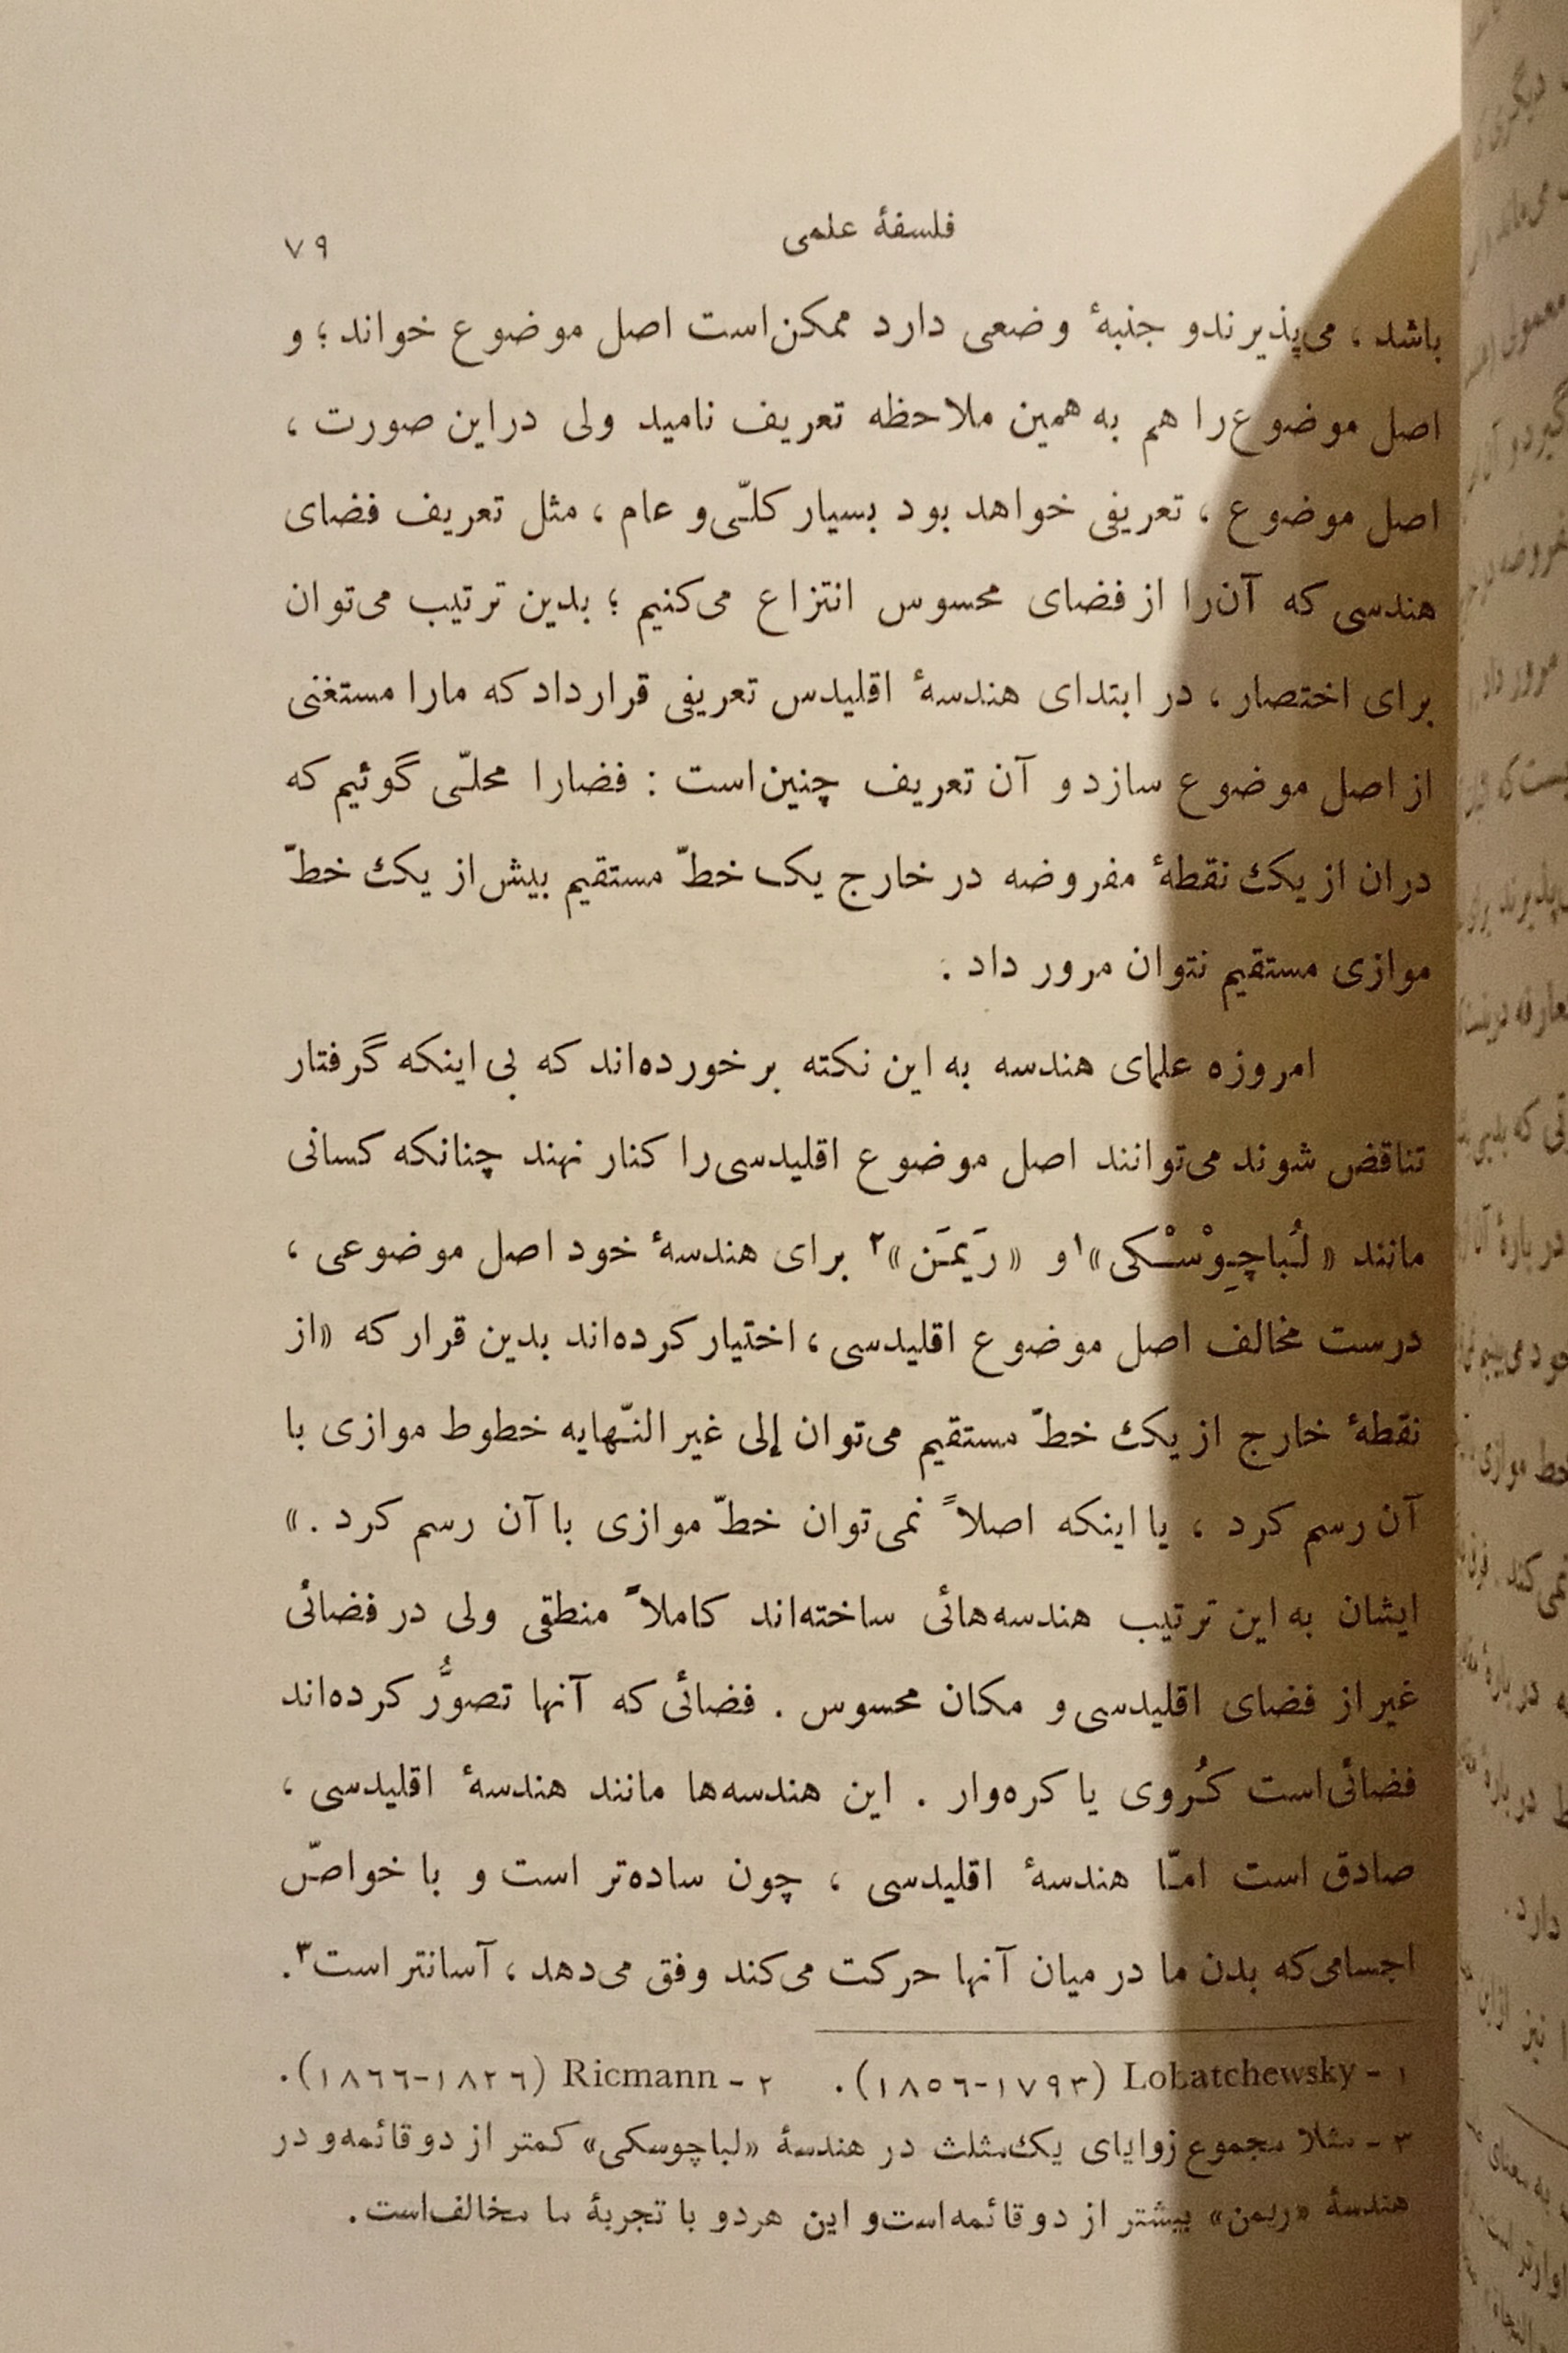 فلسفهٔ علمی
۷۹
باشد ، می‌پذیرندو جنبهٔ وضعی دارد ممکن‌است اصل موضوع خواند ؛ و
اصل موضوع‌را هم به همین ملاحظه تعریف نامید ولی دراین صورت ،
اصل موضوع ، تعریفی خواهد بود بسیار کلّی‌و عام ، مثل تعریف فضای
هندسی که آن‌را از فضای محسوس انتزاع می‌کنیم ؛ بدین ترتیب می‌توان
برای اختصار ، در ابتدای هندسهٔ اقلیدس تعریفی قرارداد که مارا مستغنی
از اصل موضوع سازد و آن تعریف چنین‌است : فضارا محلّی گوئیم که
دران از یک نقطهٔ مفروضه در خارج یک خطّ مستقیم بیش‌از یک خطّ
موازی مستقیم نتوان مرور داد .
امروزه علمای هندسه به این نکته برخورده‌اند که بی‌اینکه گرفتار
تناقض شوند می‌توانند اصل موضوع اقلیدسی‌را کنار نهند چنانکه کسانی
مانند « لُباچِوْسْکی»۱و « رَیمَن »۲ برای هندسهٔ خود اصل موضوعی ،
درست مخالف اصل موضوع اقلیدسی ، اختیار کرده‌اند بدین قرار که «از
نقطهٔ خارج از یک خطّ مستقیم می‌توان إلی غیر النّهایه خطوط موازی با
آن رسم کرد ، یا اینکه اصلاً نمی‌توان خطّ موازی با آن رسم کرد .»
ایشان به این ترتیب هندسه‌هائی ساخته‌اند کاملاً منطقی ولی در فضائی
غیر از فضای اقلیدسی‌و مکان محسوس . فضائی که آنها تصوُّر کرده‌اند
فضائی‌است کُروی یا کره‌وار . این هندسه‌ها مانند هندسهٔ اقلیدسی ،
صادق است امّا هندسهٔ اقلیدسی ، چون ساده‌تر است و با خواصّ
اجسامی‌که بدن ما در میان آنها حرکت می‌کند وفق می‌دهد ، آسانتر است۳.
۱ - Lobatchewsky (۱۷۹۳-۱۸۵٦). ۲ - Ricmann (۱۸۲٦-۱۸٦٦).
۳ - مثلا مجموع زوایای یک‌مثلث در هندسهٔ «لباچوسکی» کمتر از دوقائمه‌و در
هندسهٔ «ریمن» بیشتر از دوقائمه‌است‌و این هردو با تجربهٔ ما مخالف‌است.